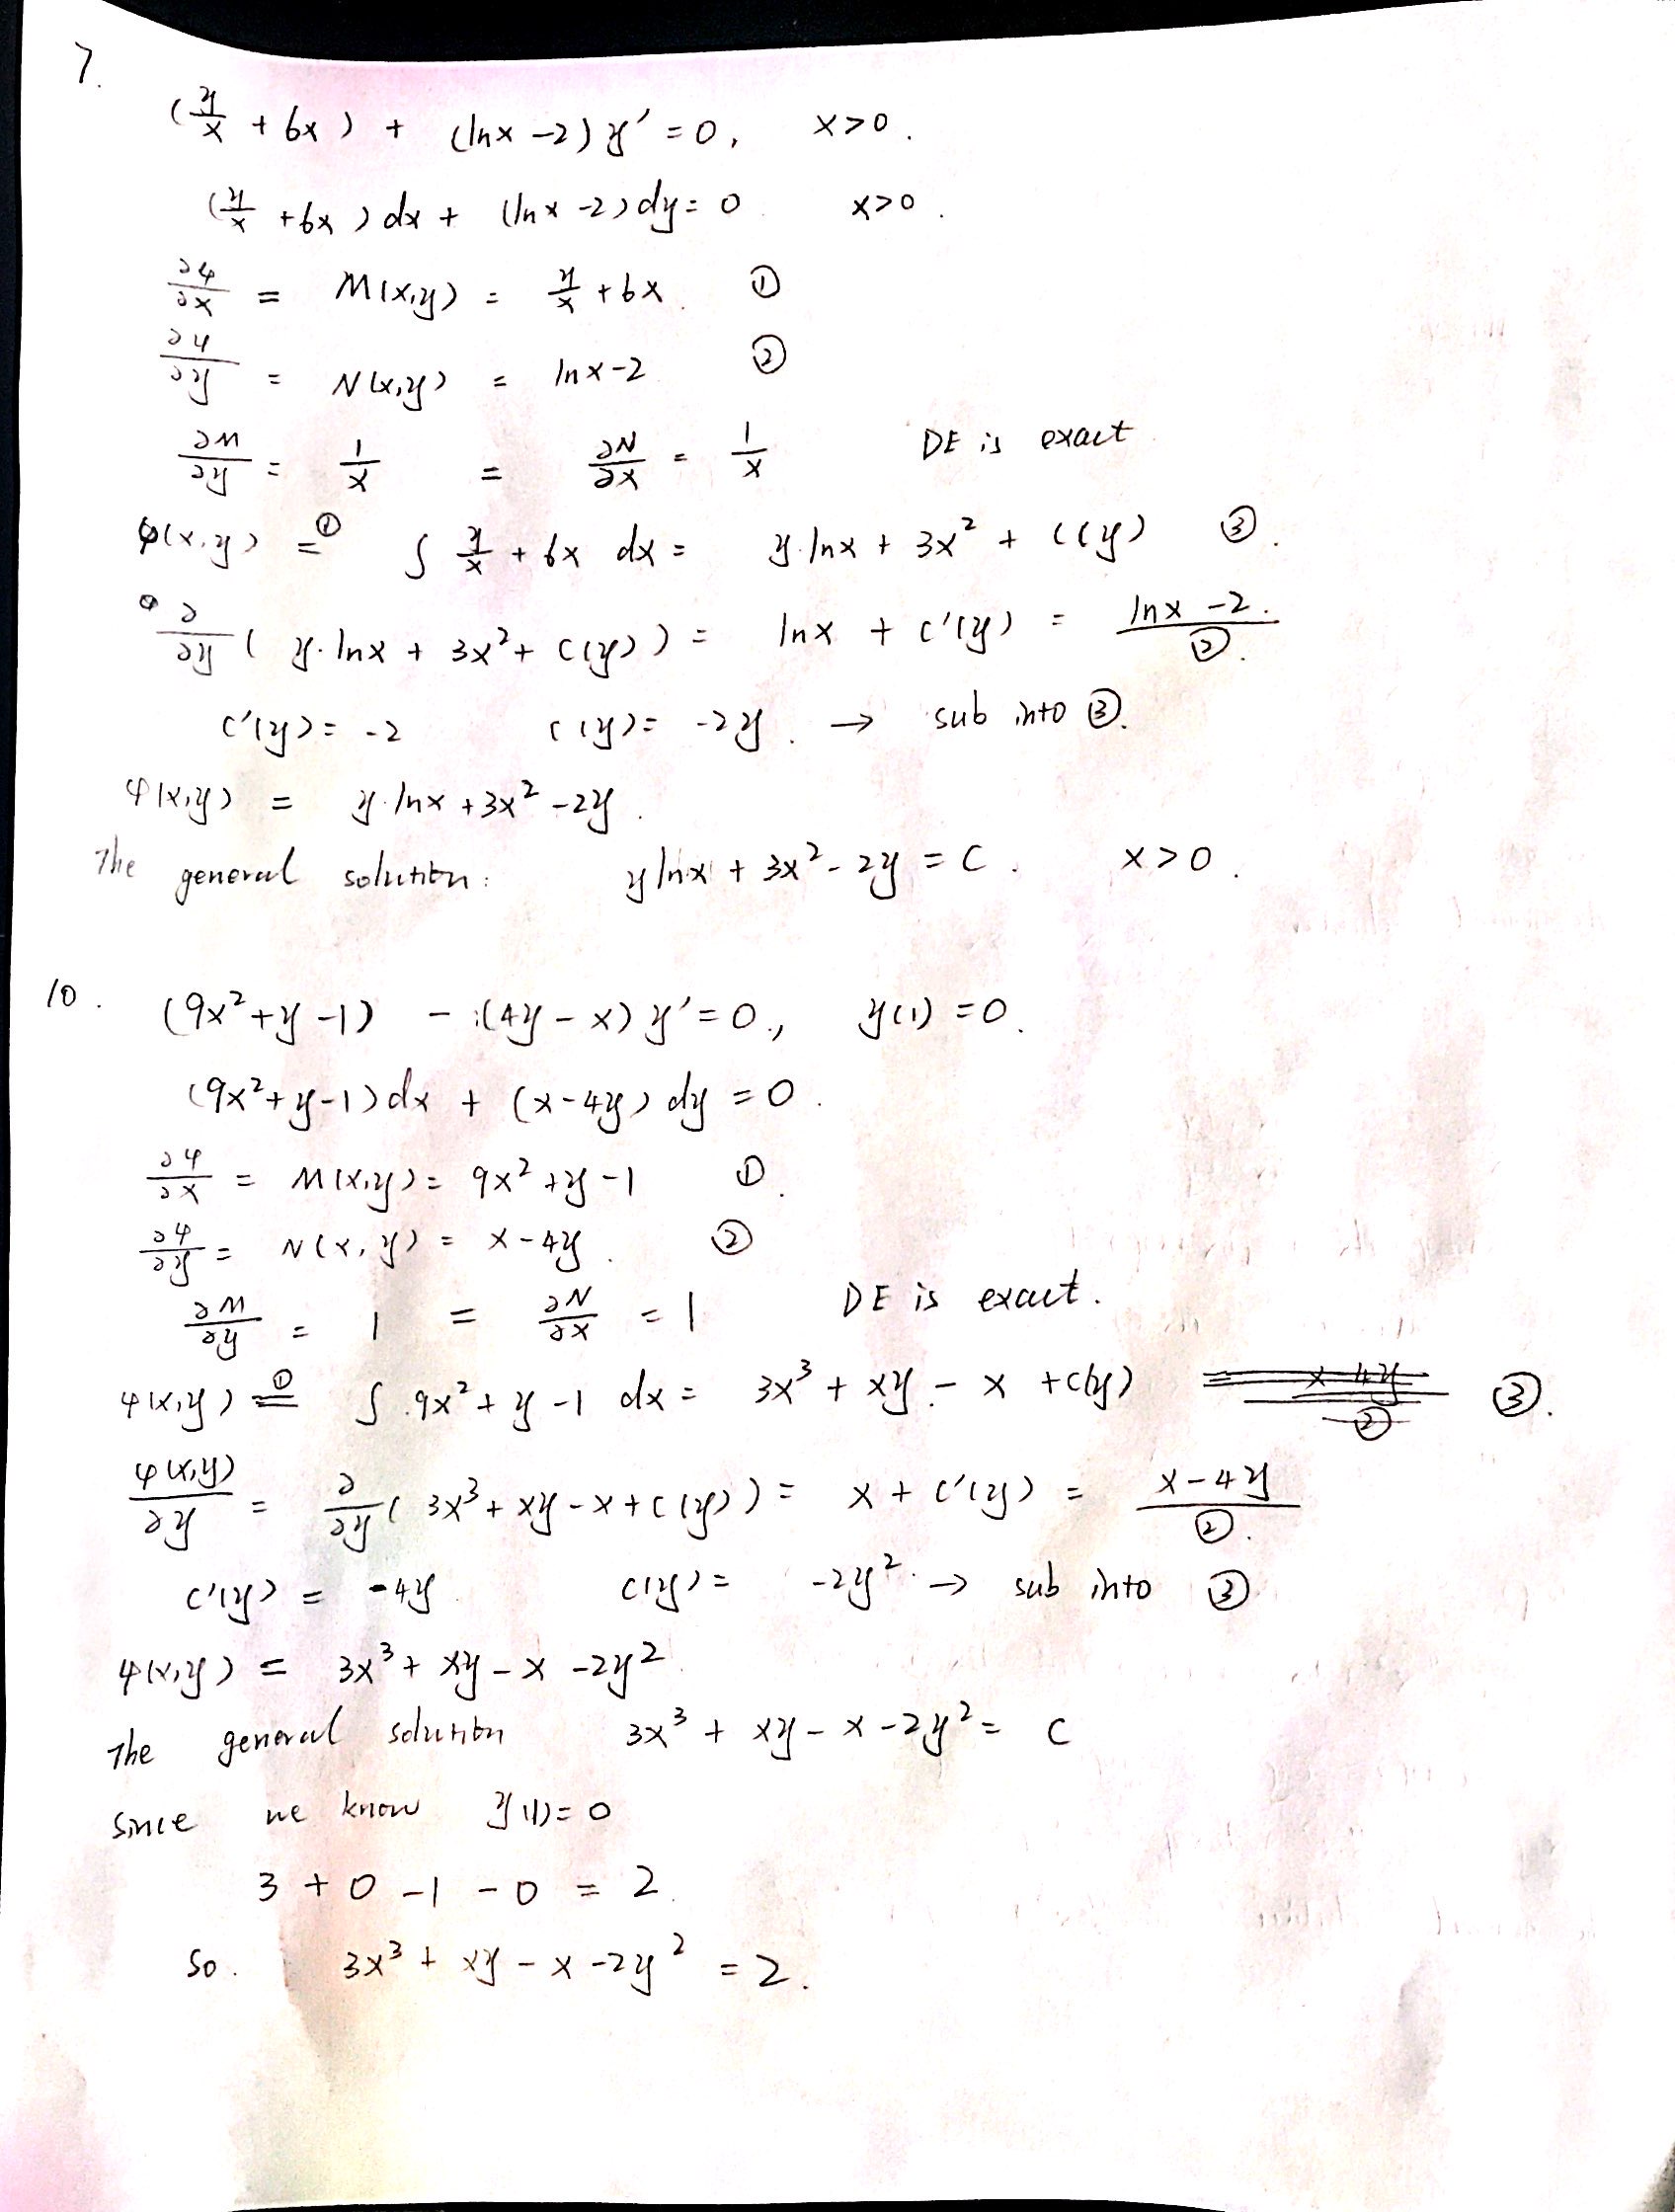 7.
(y/x + 6x) + (lnx −2) y' = 0, x>0.
(y/x +6x) dx + (lnx −2) dy = 0 x>0.
∂φ/∂x = M(x,y) = y/x + 6x. ①
∂φ/∂y = N(x,y) = lnx−2 ②
∂M/∂y = 1/x = ∂N/∂x = 1/x DE is exact
φ(x,y) =① ∫ y/x + 6x dx = y·lnx + 3x² + C(y) ③.
∂/∂y ( y·lnx + 3x² + C(y)) = lnx + C'(y) = lnx −2. ②.
C'(y) = −2 C(y) = −2y. → sub into ③.
φ(x,y) = y·lnx +3x² −2y.
The general solution: y lnx + 3x² − 2y = C. x>0.
10. (9x²+y −1) − (4y − x) y' = 0, y(1) = 0.
(9x²+y−1) dx + (x−4y) dy = 0.
∂φ/∂x = M(x,y) = 9x² +y −1 ①.
∂φ/∂y = N(x, y) = x−4y. ②
∂M/∂y = 1 = ∂N/∂x = 1 DE is exact.
φ(x,y) =① ∫ 9x² + y −1 dx = 3x³ + xy − x + C(y) = x−4y ② ③.
φ(x,y)/∂y = ∂/∂y ( 3x³ + xy − x + C(y)) = x + C'(y) = x−4y ②.
C'(y) = −4y C(y) = −2y². → sub into ③
φ(x,y) = 3x³ + xy − x −2y²
The general solution 3x³ + xy − x −2y² = C
Since we know y(1) = 0
3 + 0 −1 − 0 = 2.
So. 3x³ + xy − x −2y² = 2.